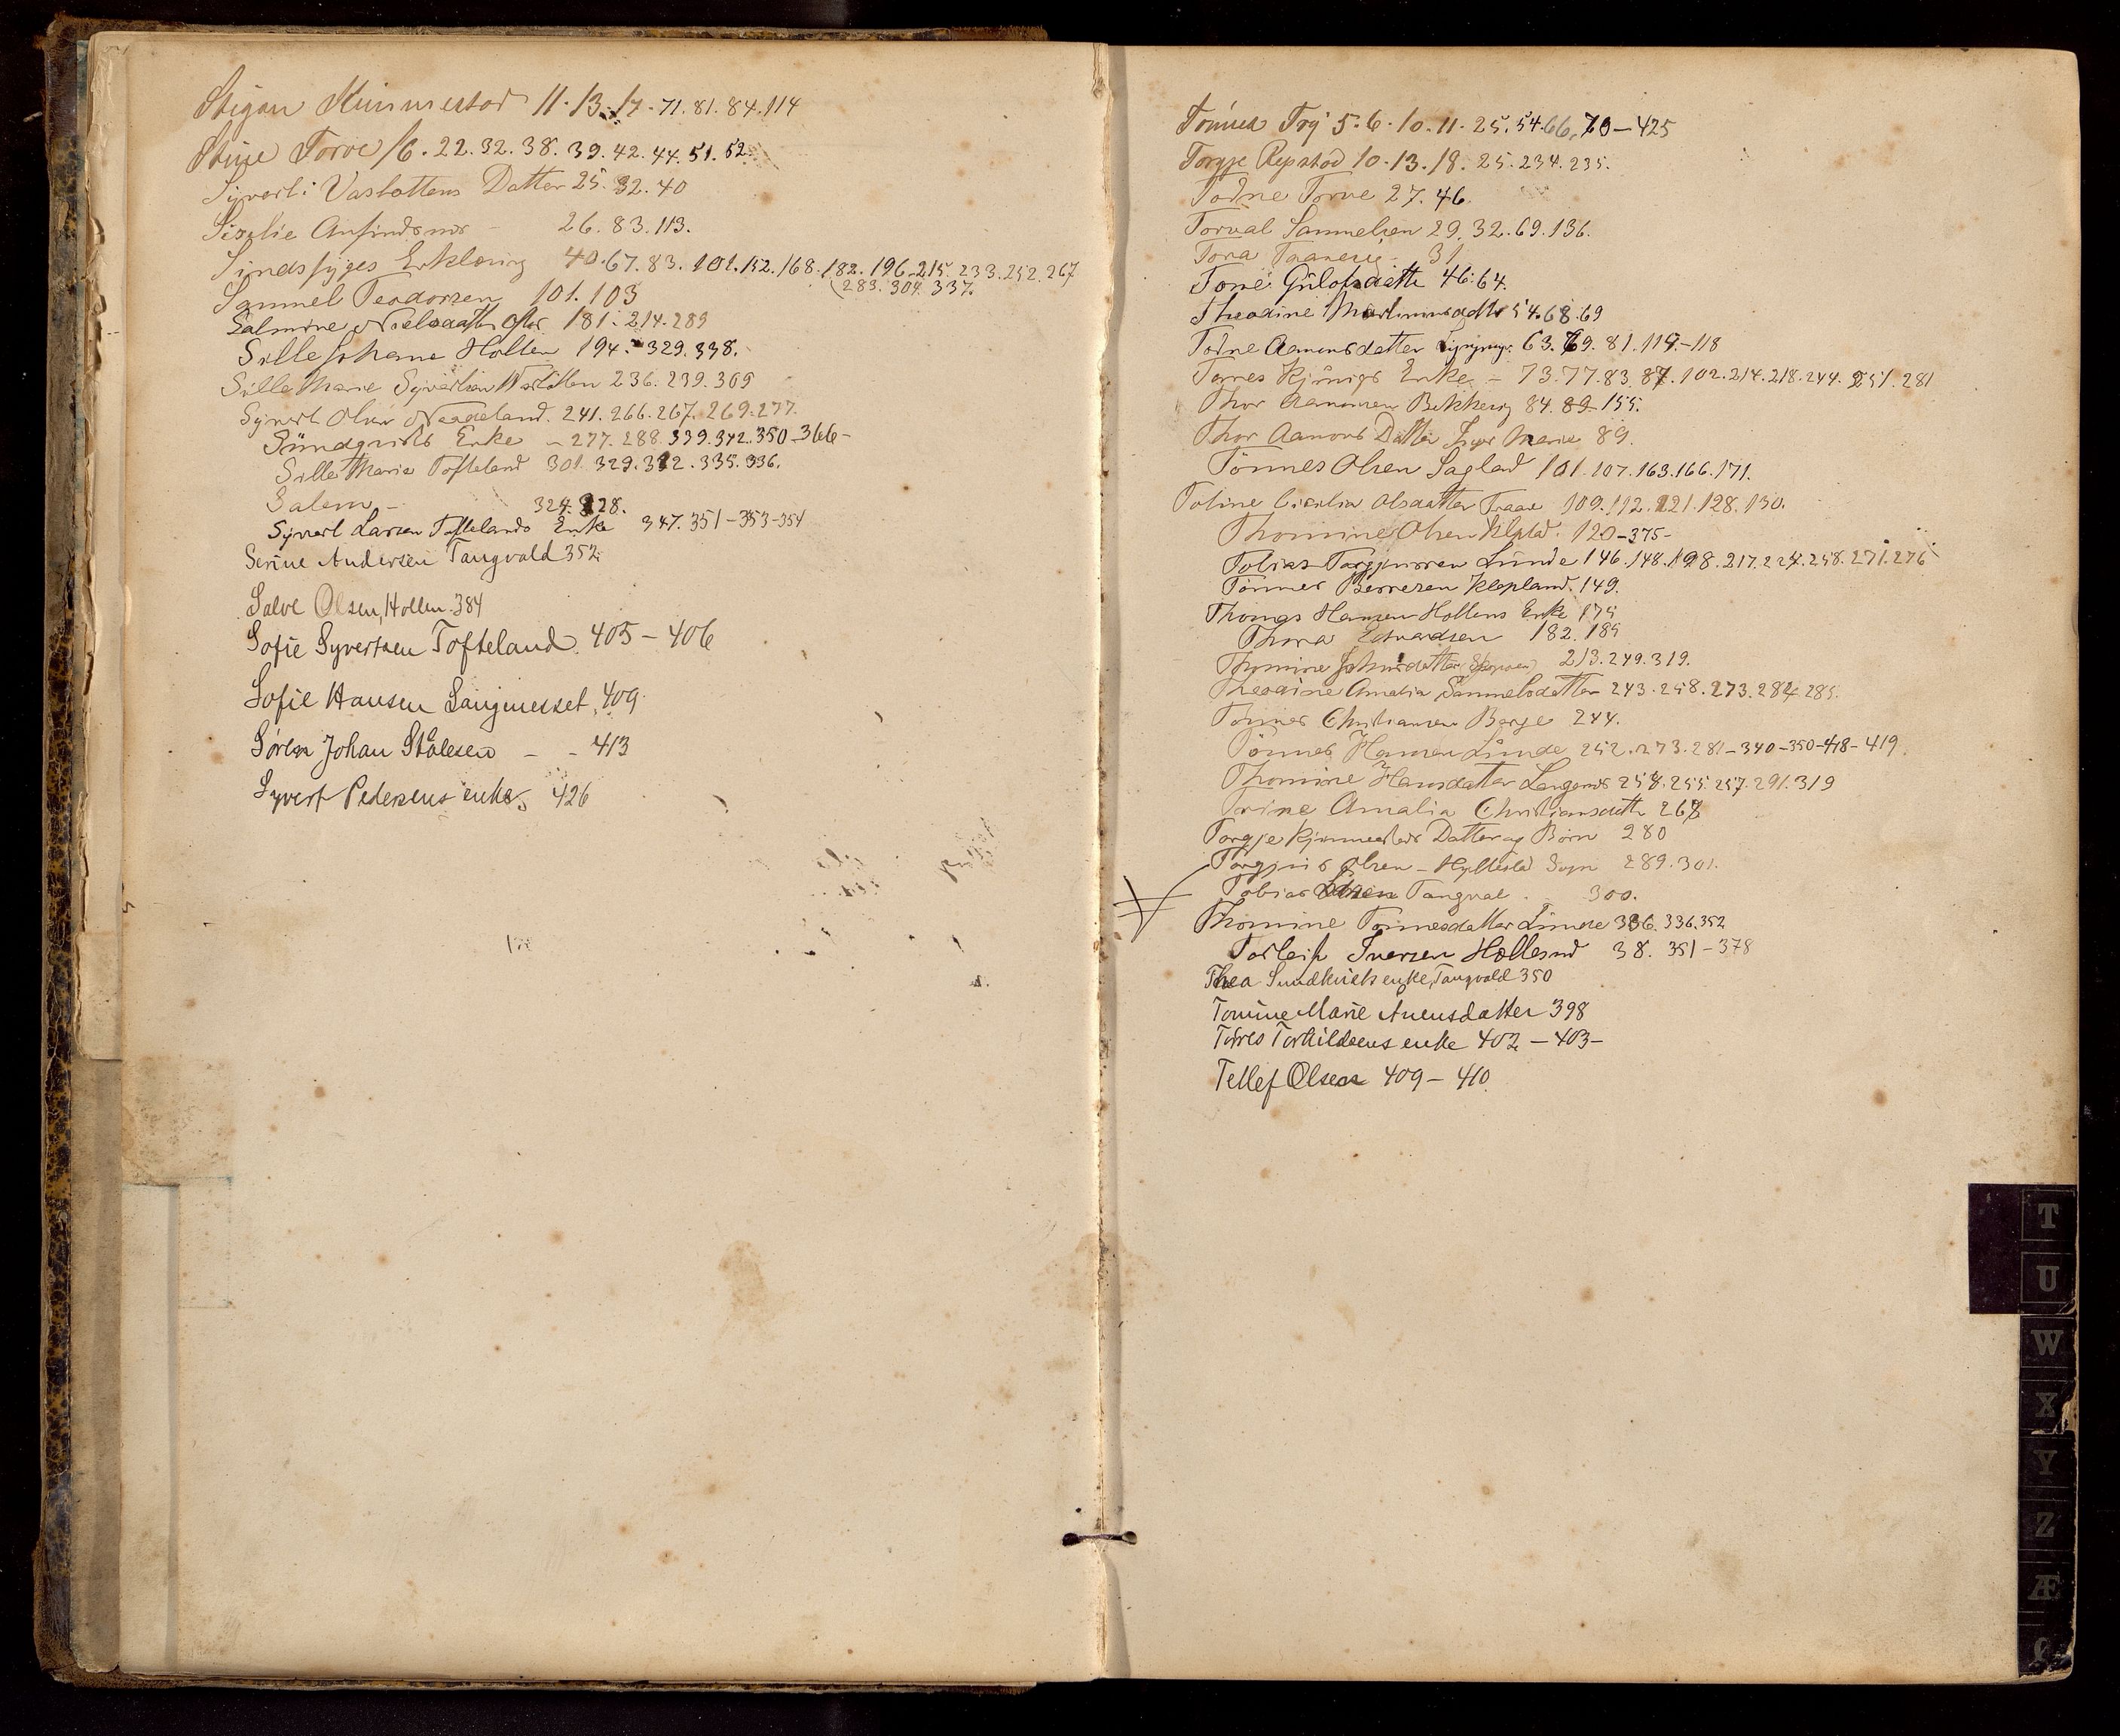 Stigan Kimmestad 11. 13. 17. 71. 81. 84. 114
Stine Torve 16. 22. 32. 38. 39. 42. 44. 51. 52.
Syverti Vaslottens Datter 25. 32. 40
Siselie Anfinds 26. 83. 113.
Sindssyges Erklæring 40. 67. 83. 101. 152. 168. 182. 196. 215. 233. 252. 267
(283. 304. 337.
Sammel Teodorsen 101. 103
Salmine Nielsdatter 181. 214. 289
Sille Johane Hollen 194. 329. 338.
Sille Marie Syvertsen 236. 239. 309
Syvert Olsen Naadeland. 241. 266. 267. 269. 277.
Sündqvists Enke – 277. 288. 339. 342. 350 – 366 –
Sille Marie Tofteland 301. 329. 332. 335. 336.
Salem – 324. 328.
Syvert Larsen Toftelands Enke 347. 351 – 353 – 354
Serine Andersen Tangvald 352.
Salve Olsen, Hollen. 384
Sofie Syvertsen Tofteland. 405 – 406
Sofie Hansen Langnesset, 409.
Søren Johan Stålesen – – 413
Syvert Pedersens enke, 426
Tønnes Try 5. 6. 10. 11. 25. 54. 66. 70 – 425
Torgje Repstad 10. 13. 18. 25. 234. 235.
Todne Torve 27. 46.
Torval Sammelsen 29. 32. 69. 136.
Tora 31
Tone 46. 64.
Theodine Martinusdatter 54. 68. 69
Todne Aamundsdatter 63. 69. 81. 114. – 118
Tønnes Enke – 73. 77. 83. 87. 102. 214. 218. 244. 251. 281
Thor Aamonsen 84. 89. 155.
Thor Aamons Datter Marie 89.
Tønnes Olsen Saglad 101. 107. 163. 166. 171.
Toline Olsdatter 109. 112. 121. 128. 130.
Thomine Olsen 120 – 375 –
Tobias Torgjussen Lunde 146. 148. 198. 217. 224. 258. 271. 276
Tønnes Berresen Klepland. 149.
Thomas Hansen Hollens Enke 175
Thora Edvardsen 182. 185
Thomine Johnsdatter 213. 249. 319.
Theodine Amalia Sammelsdatter 243. 258. 273. 284. 285.
Tønnes Christiansen Berge 244.
Tønnes Hansen Lunde 252. 273. 281 – 340 – 350 – 418 – 419
Thomine Hansdatter 254. 255. 257. 291. 319
Torine Amalia Christiansdatter 268
Torgje Kjimmestads Datter og Børn 280
Torgjuis Olsen – Søn 289. 301.
Tobias Tangval 300.
Thomine Tønnesdatter Lunde 336. 336. 352
Torleif Iversen Hollesund 38. 351 – 378
Thea Sundkvists enke, Tangvald 350
Tomine Marie Auensdatter 398
Torres Torkildsens enke 402 – 403 –
Tellef Olsen 409 – 410.
T
U
W
X
Y
Z
Æ